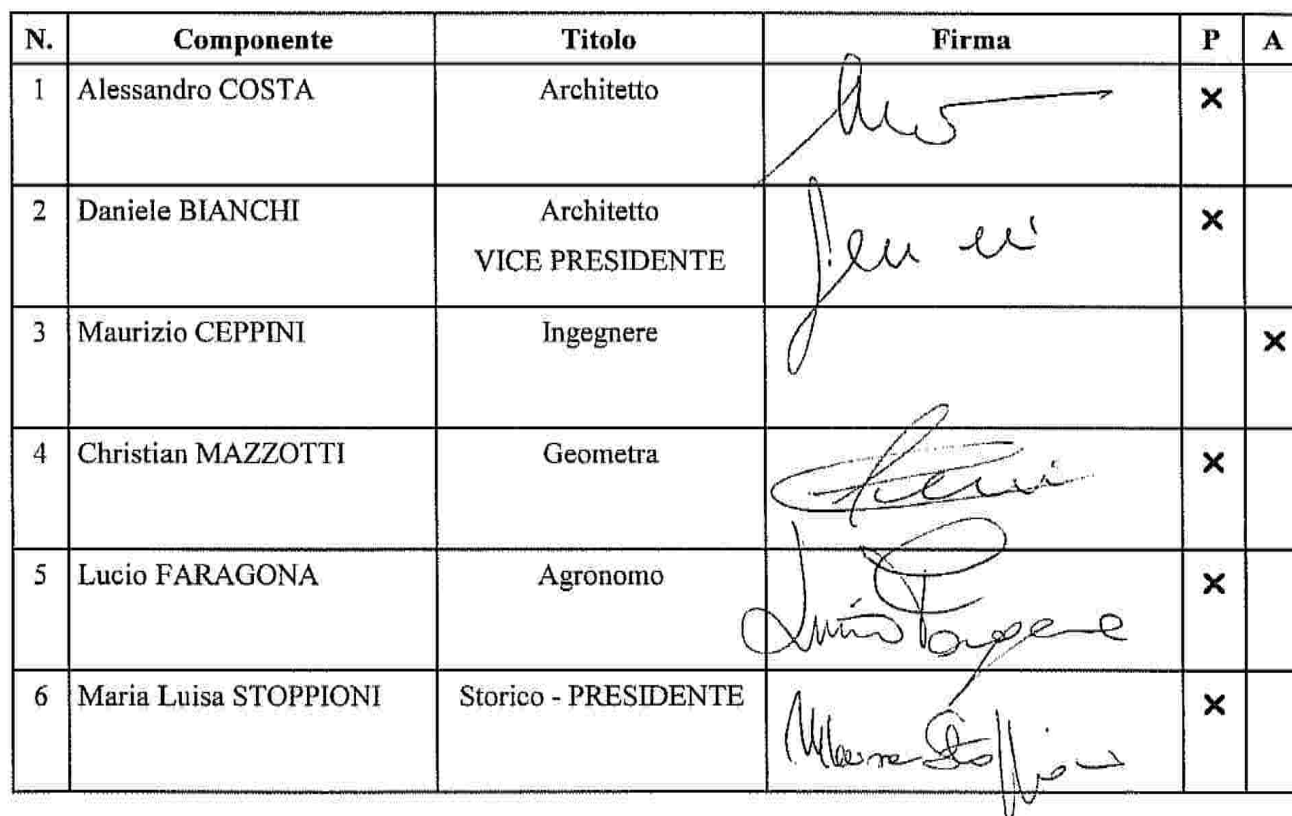 N. Componente Titolo Firma P A
1 Alessandro COSTA Architetto ×
2 Daniele BIANCHI Architetto ×
VICE PRESIDENTE
3 Maurizio CEPPINI Ingegnere ×
4 Christian MAZZOTTI Geometra ×
5 Lucio FARAGONA Agronomo ×
6 Maria Luisa STOPPIONI Storico - PRESIDENTE ×